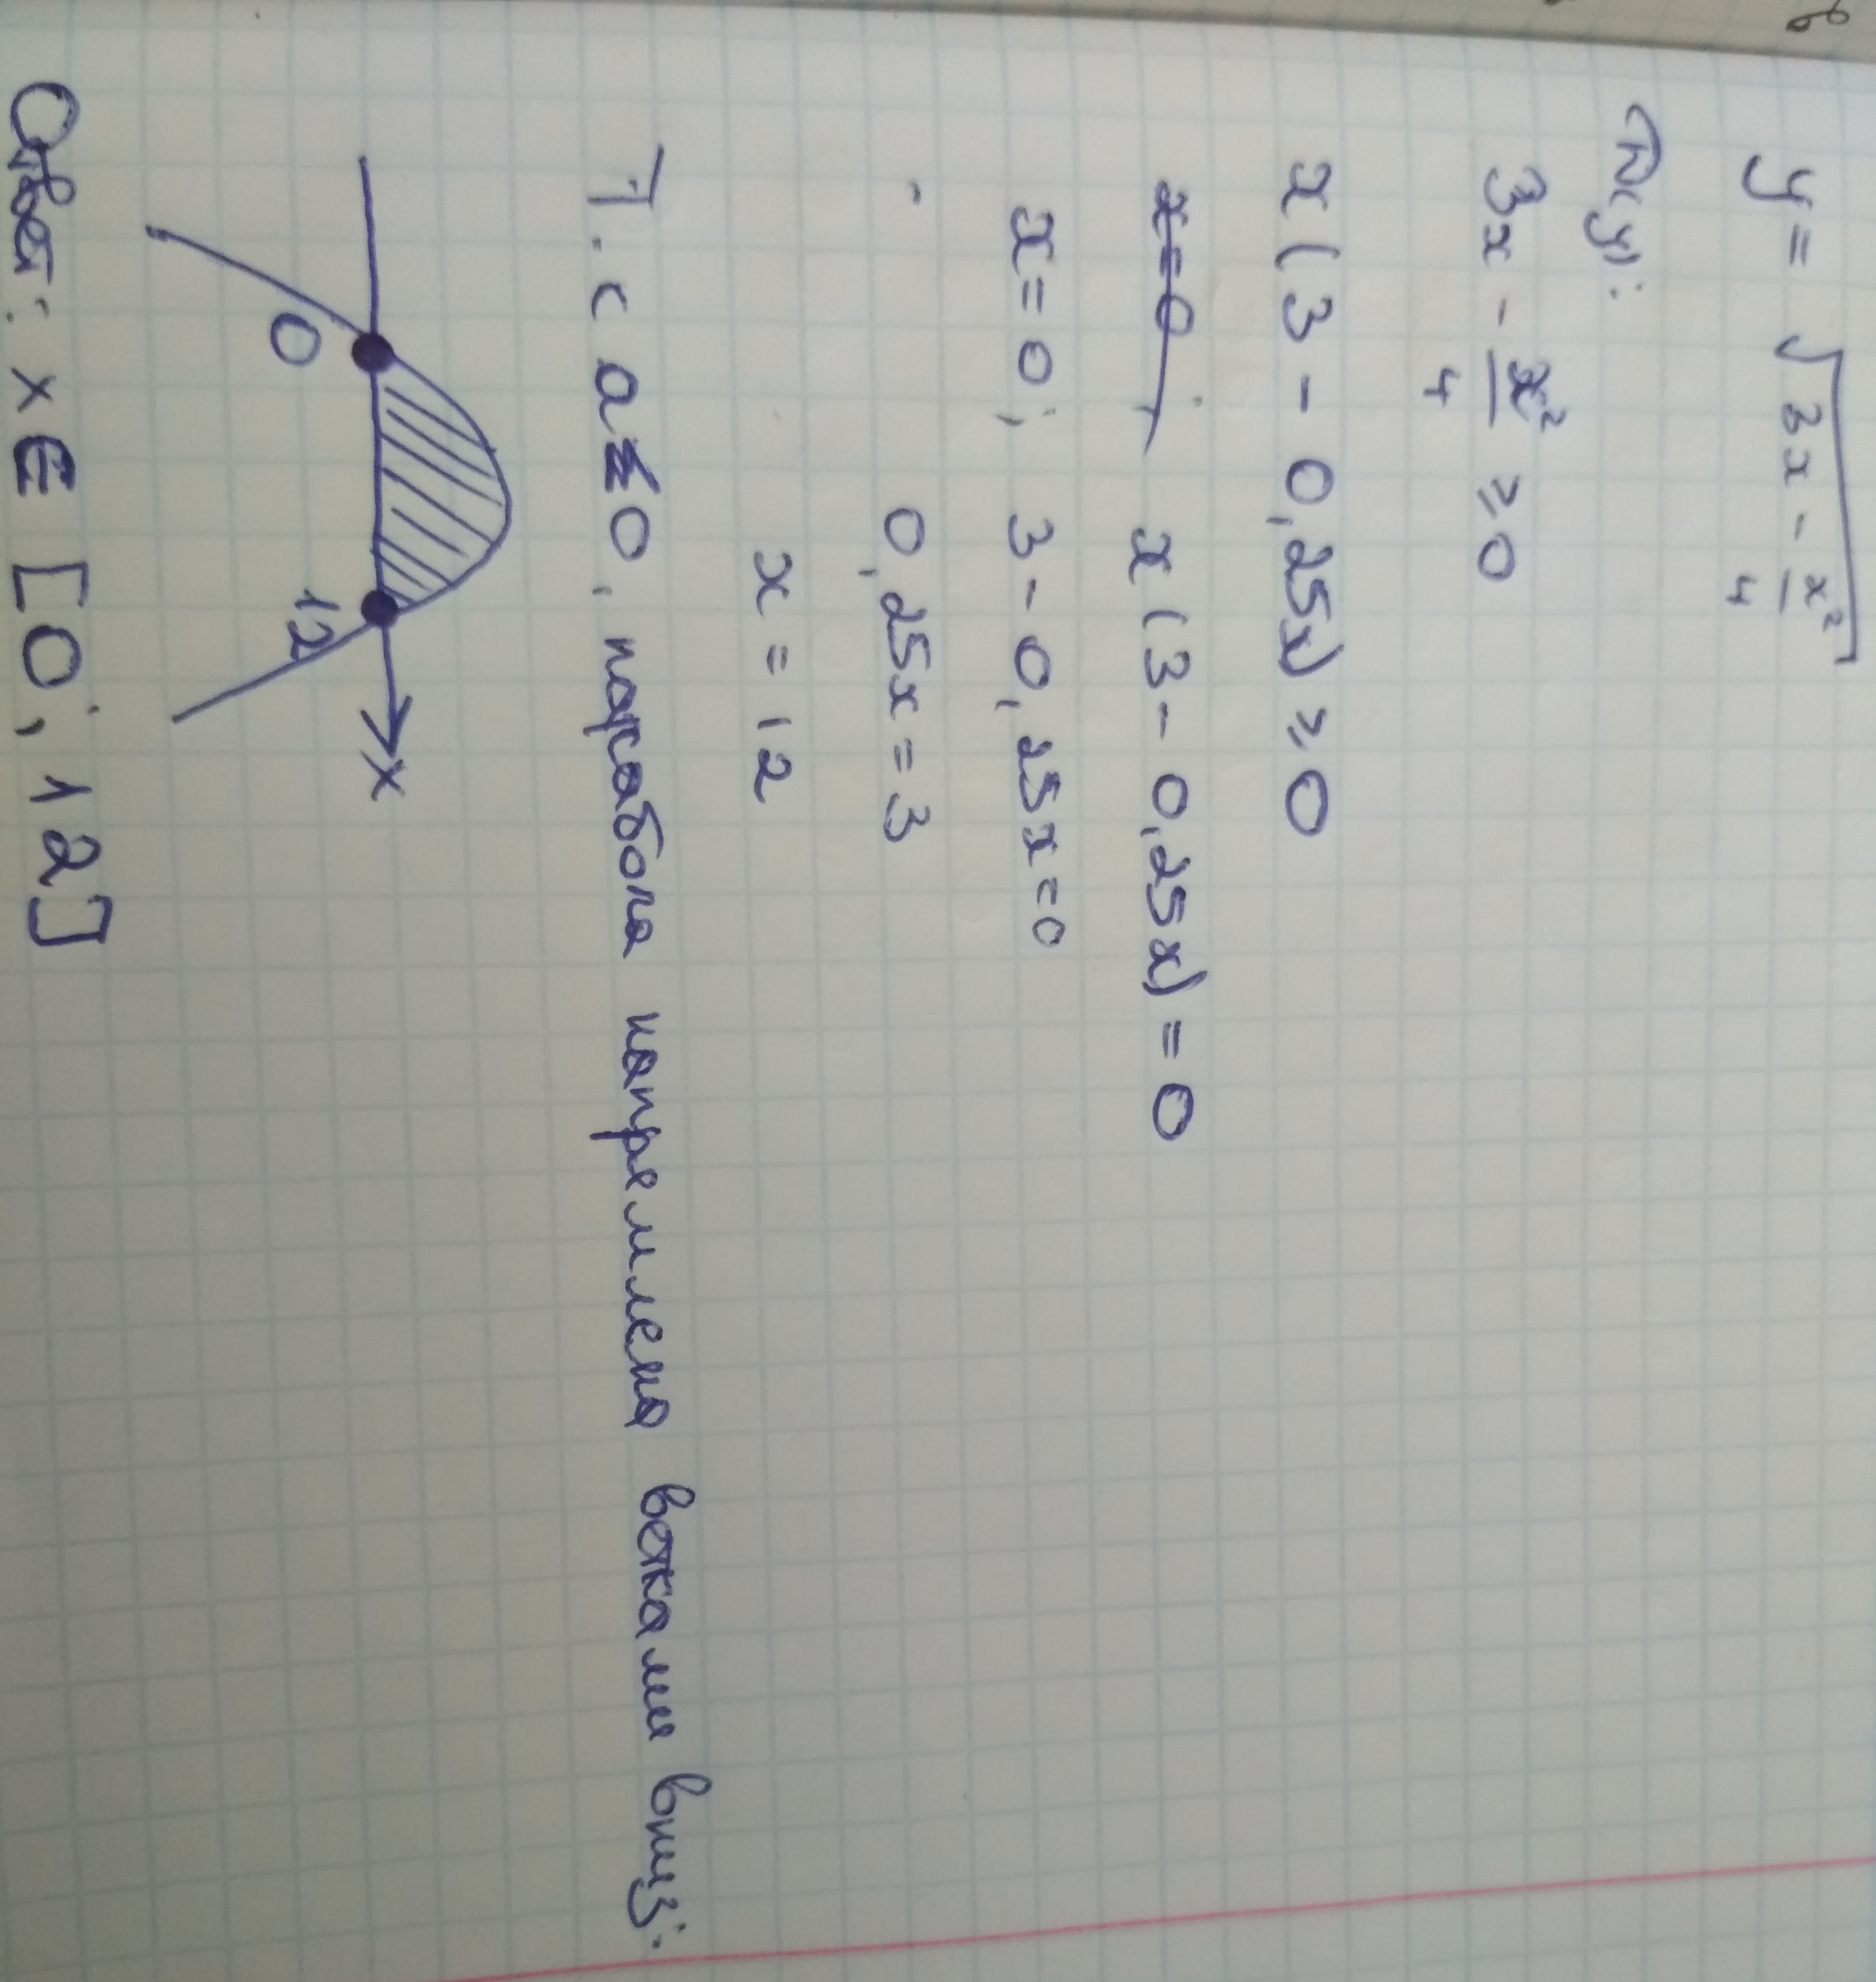 y = √(3x - x²/4)
D(y):
3x - x²/4 ≥ 0
x(3 - 0,25x) ≥ 0
x=0; x(3 - 0,25x) = 0
x=0; 3 - 0,25x = 0
0,25x = 3
x = 12
Т.с a≤0, парабола направлена ветками вниз.
0 12 x
Ответ: x∈[0; 12]